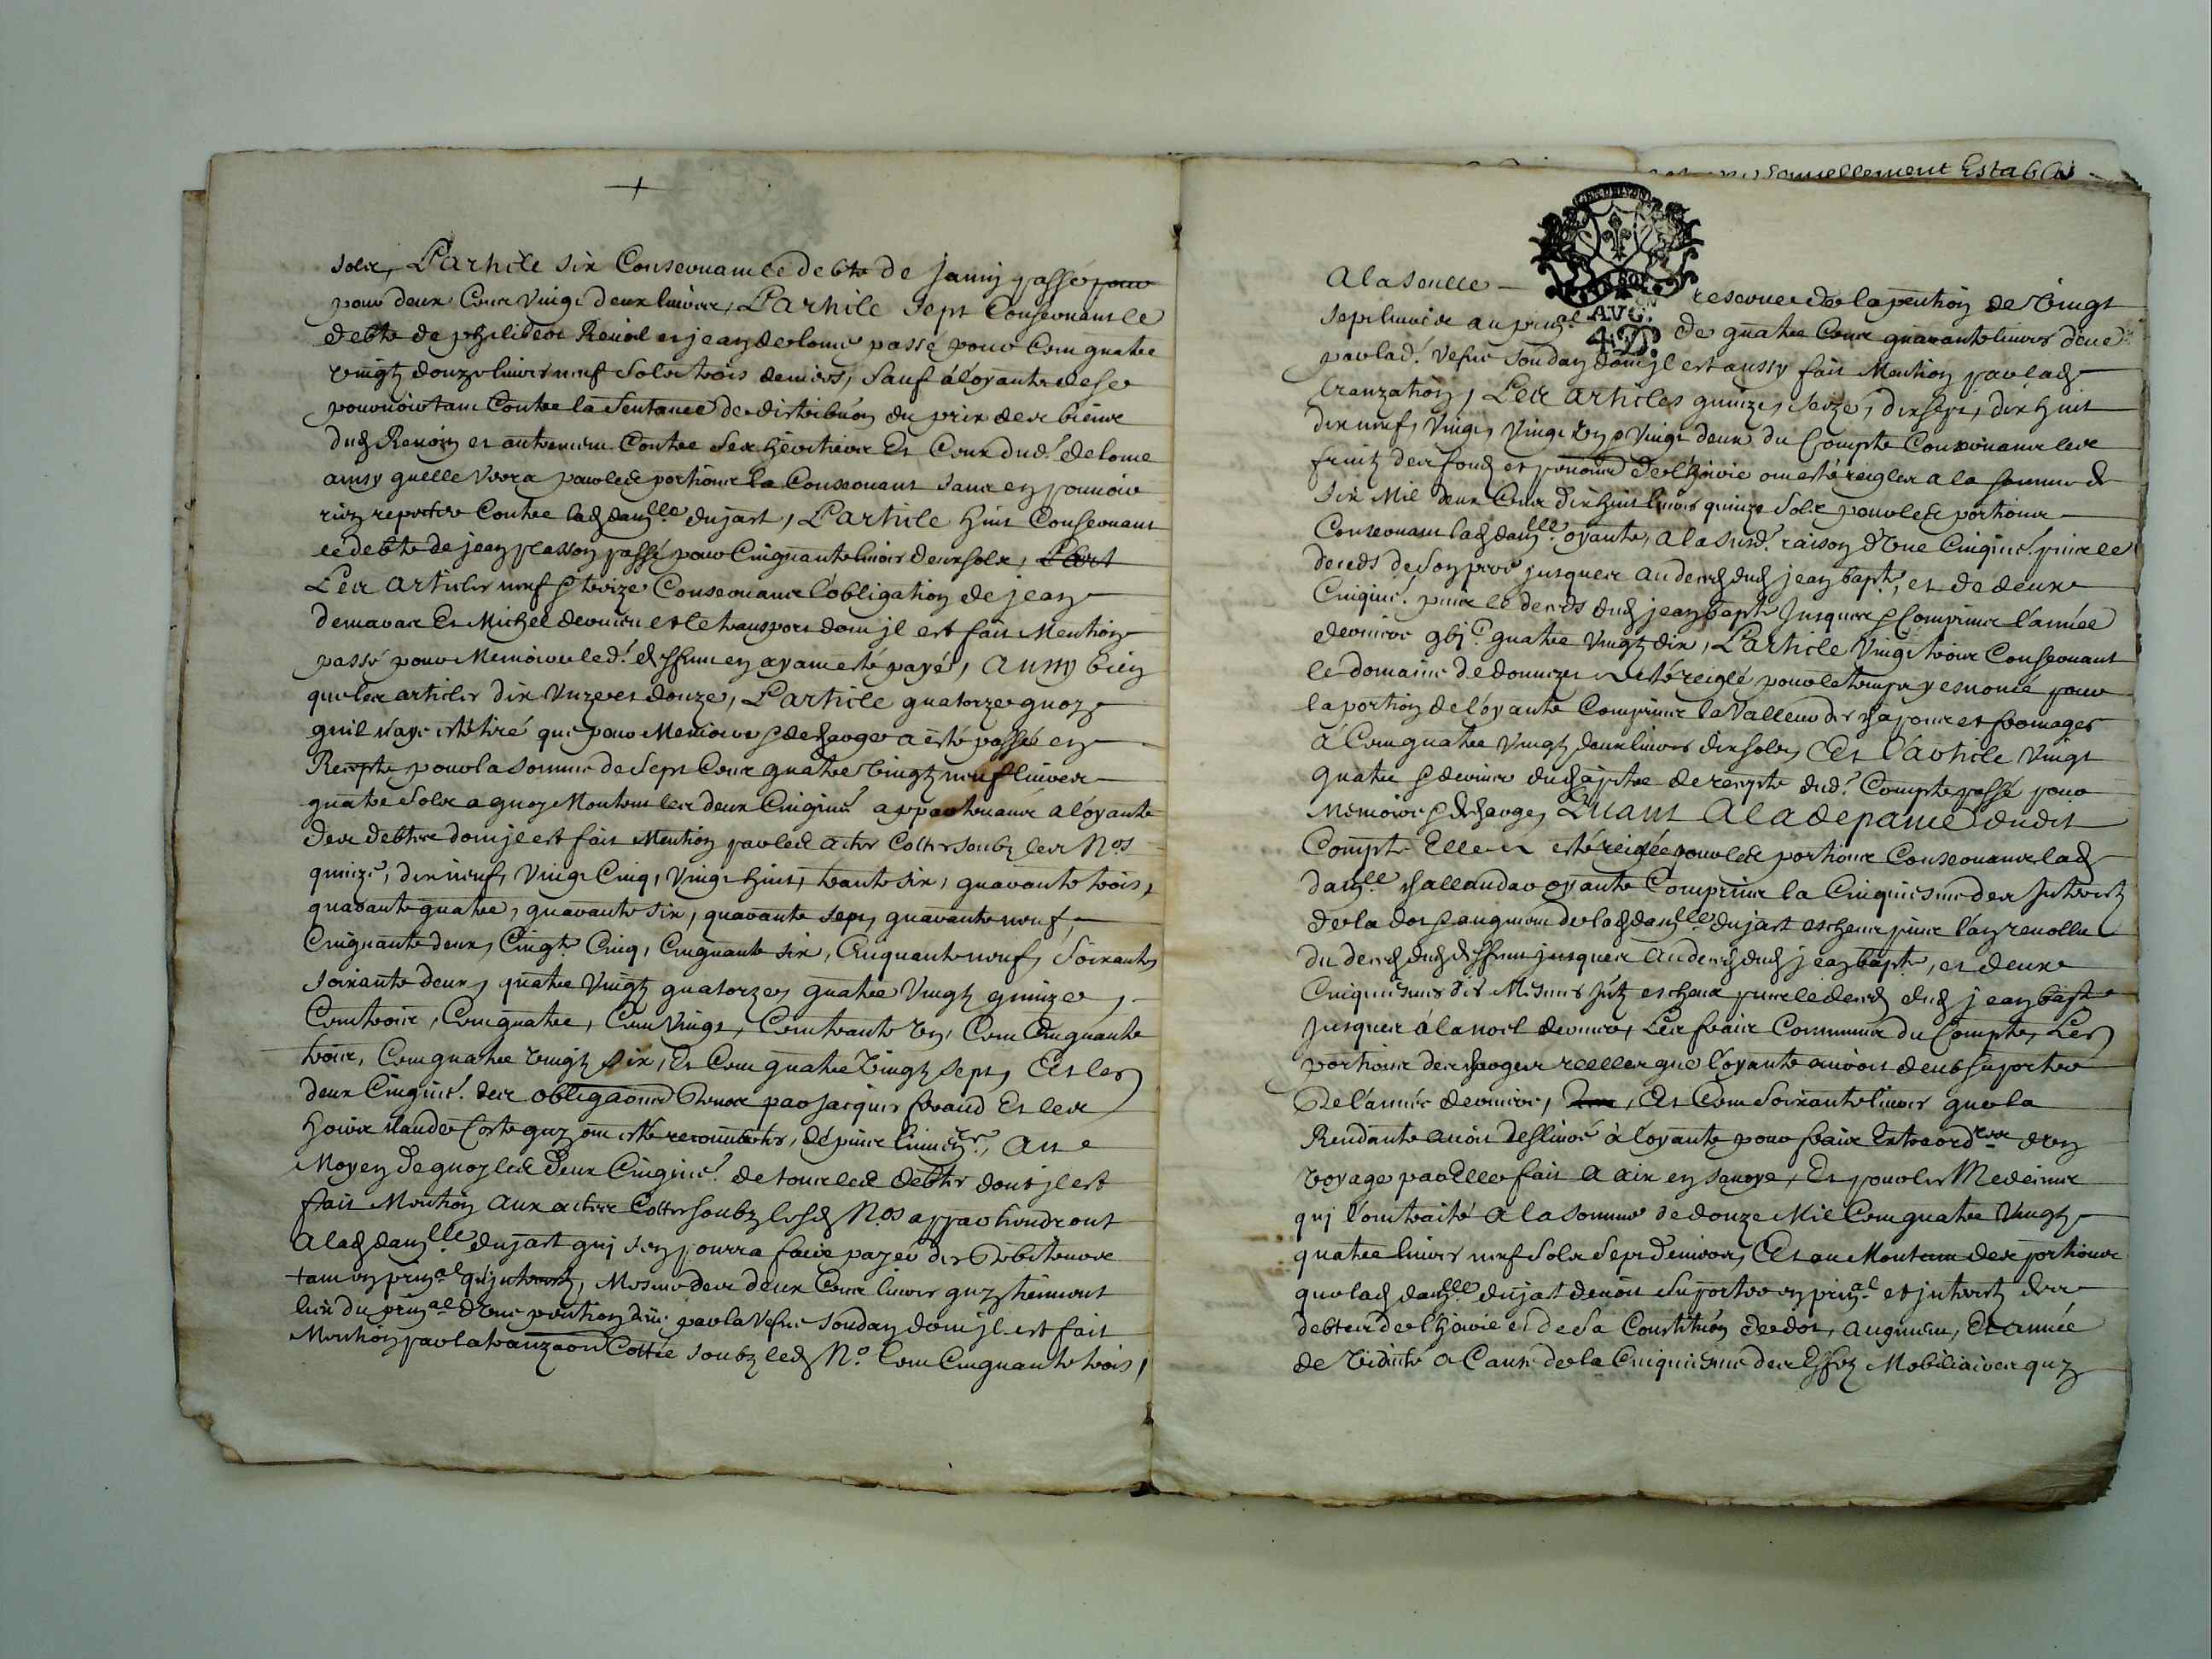 sols, L'article six Consernant le debte de Janin passé pour
pour deux Cens vingt deux livres, L'article sept Consernant le
debte de philibert Revoil et jean delome passé pour Cens quatre
vingtz douze livres neuf sols trois deniers, sauf à l'oyante de se
pourvoir tant Contre la sentance de distribuon du prix des biens
dud et autrement Contre ses héritiers Et Ceux dud. delome
ainsy quelle verra pour les portions la Consernant sans en pouvoir
rien repeter Contre lad. damlle dujast, L'article huit Consernant
le debte de jean plasson passé pour Cinquante livres deux sols, L'art
Les articles neuf & treize Consernant l'obligation de jean
demavas Et Michel et le transport dont jl est fait Mention
passé pour Memoire led. deffunt en ayant esté payé, aussy bien
que les articles dix vnze et douze, L'article quatorze quoy
quil n'aye esté tiré que pour Memoire & descharge a esté passé en
Recepte pour la somme de sept Cens quatre vingtz neuf livres
quatre sols a quoy Montent les deux Cinquie. appartenans a l'oyante
des debtes dont jl est fait Mention par les actes Cottes soubz les Nos
quinze, dix neuf, vingt Cinq, vingt huit, trante six, quarante trois,
quarante quatre, quarante six, quarante sept, quarante neuf,
Cinquante deux, Cinqte Cinq, Cinquante six, Cinquante neuf, soixante,
soixante deux, quatre vingtz quatorze, quatre vingtz quinze,
Cent trois, Cent quatre, Cent vingt, Cent trante vn, Cent Cinquante
trois, Cent quatre vingtz six, Et Cent quatre vingtz sept, Et les
deux Cinquie. des obligaons par jacques feraud Et les
hoirs Corte quy ont esté , depuis , Au
Moyen de quoy les deux Cinquie. de tous les debtes dont jl est
fait Mention aux actes Cottes soubz lesd. Nos appartiendront
a lad. damlle dujast quj s'en pourra faire payer des debiteurs
tant en prinal qu'jnterestz, Mesme des deux Cens livres quy tiennent
lieu du prinal d'vne pention düe par la vefve soudan dont jl est fait
Mention par la tranzaon Cottée soubz led. No. Cent Cinquante trois,
a la seulle reserve de la pention de vingt
sept livres au prinal de quatre Cens quarante livres deüe
par lad. vefve soudan dont jl est aussy fait Mention par lad.
tranzation, Les articles quinze, seize, dix sept, dix huit
dix neuf, vingt, vingt vn & vingt deux du Compte Consernant les
fruitz des fondz et de l'hoirie ont esté reigles a la somme de
six Mil deux Cens dix huit livres quinze sols pour les portions
Consernant lad. damlle oyante, a la susd. raison d'vne Cinquie. puis le
deceds de son pere jusques au deceds dud. jean bapte, et de deux
Cinquie. puis le deceds dud. jean bapte jusques & Compris l'année
derniere quatre vingtz dix, L'article vingt trois Consernant
le domaine de donnezes a esté reiglé pour le temps y esnoncé pour
la portion de l'oyante Compris la valleur des chapons et fromages
à Cens quatre vingtz deux livres dix sols, Et l'article vingt
quatre & dernier du chapitre de recepte dud. Compte passé pour
Memoire & descharge, Quant A la depance dudit
Compte Elle a esté reiglée pour les portions Consernant lad.
damlle oyante Compris la Cinquiesme des jnterestz
de la dot & augment de lad. damlle dujast escheus puis l'an revollu
du deceds dud. deffunt jusques au deceds dud. jean bapte, et deux
Cinquiesmes des Mesmes jntz escheus puis le deceds dud. jean bapte
jusques à la noel derniere, Les fraix Communs du Compte, Les
portions des charges reelles que l'oyante avoit deub suporter
De l'année derniere, , Et Cent soixante livres que la
Rendante avoit deslivré à l'oyante pour fraix Extraordres d'vn
voyage par Elle fait a aix en savoye, Et pour les Medecins
quj l'ont traité a la somme de douze Mil Cent quatre vingtz
quatre livres neuf sols sept deniers, Et au Montant des portions
que lad. damlle dujast devoit suporter en prinal et jnterestz des
debtes de l'hoirie et de sa Constituon de dot, augment, Et année
de viduité a Cause de la Cinquiesme des Effetz Mobiliaires quy